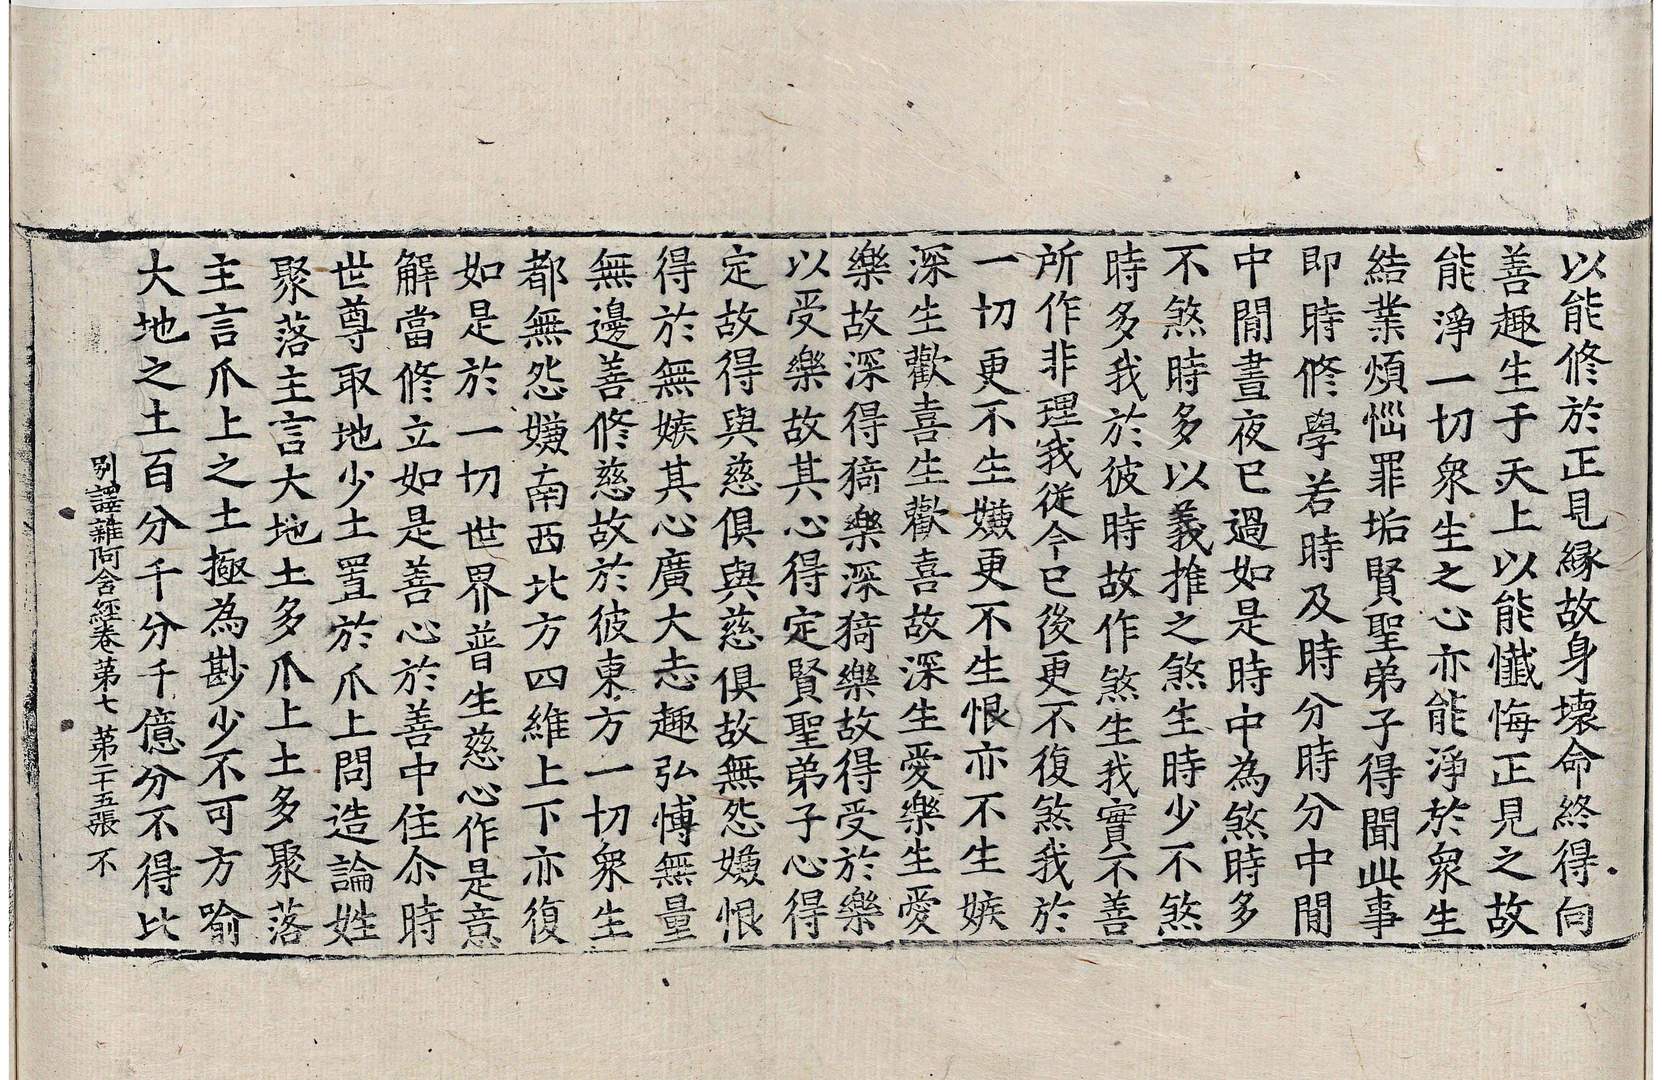 以能修於正見縁故身壞命終得向
善趣生于天上以能懺悔正見之故
能淨一切衆生之心亦能淨於衆生
結業煩惱罪垢賢聖弟子得聞此事
即時修學若時及時分時分中閒
中閒晝夜已過如是時中為煞時多
不煞時多以義推之煞生時少不煞
時多我於彼時故作煞生我實不善
所作非理我從今已後更不復煞我於
一切更不生嫌更不生恨亦不生嫉
深生歡喜生歡喜故深生愛樂生愛
樂故深得猗樂深猗樂故得受於樂
以受樂故其心得定賢聖弟子心得
定故得與慈俱與慈俱故無怨嫌恨
得於無嫉其心廣大志趣弘愽無量
無邊善修慈故於彼東方一切衆生
都無怨嫌南西北方四維上下亦復
如是於一切世界普生慈心作是意
解當修立如是善心於善中住尒時
世尊取地少土置於爪上問造論姓
聚落主言大地土多爪上土多聚落
主言爪上之土極為尠少不可方喻
大地之土百分千分千億分不得比
別譯雜阿含經卷第七 第二十五張 不